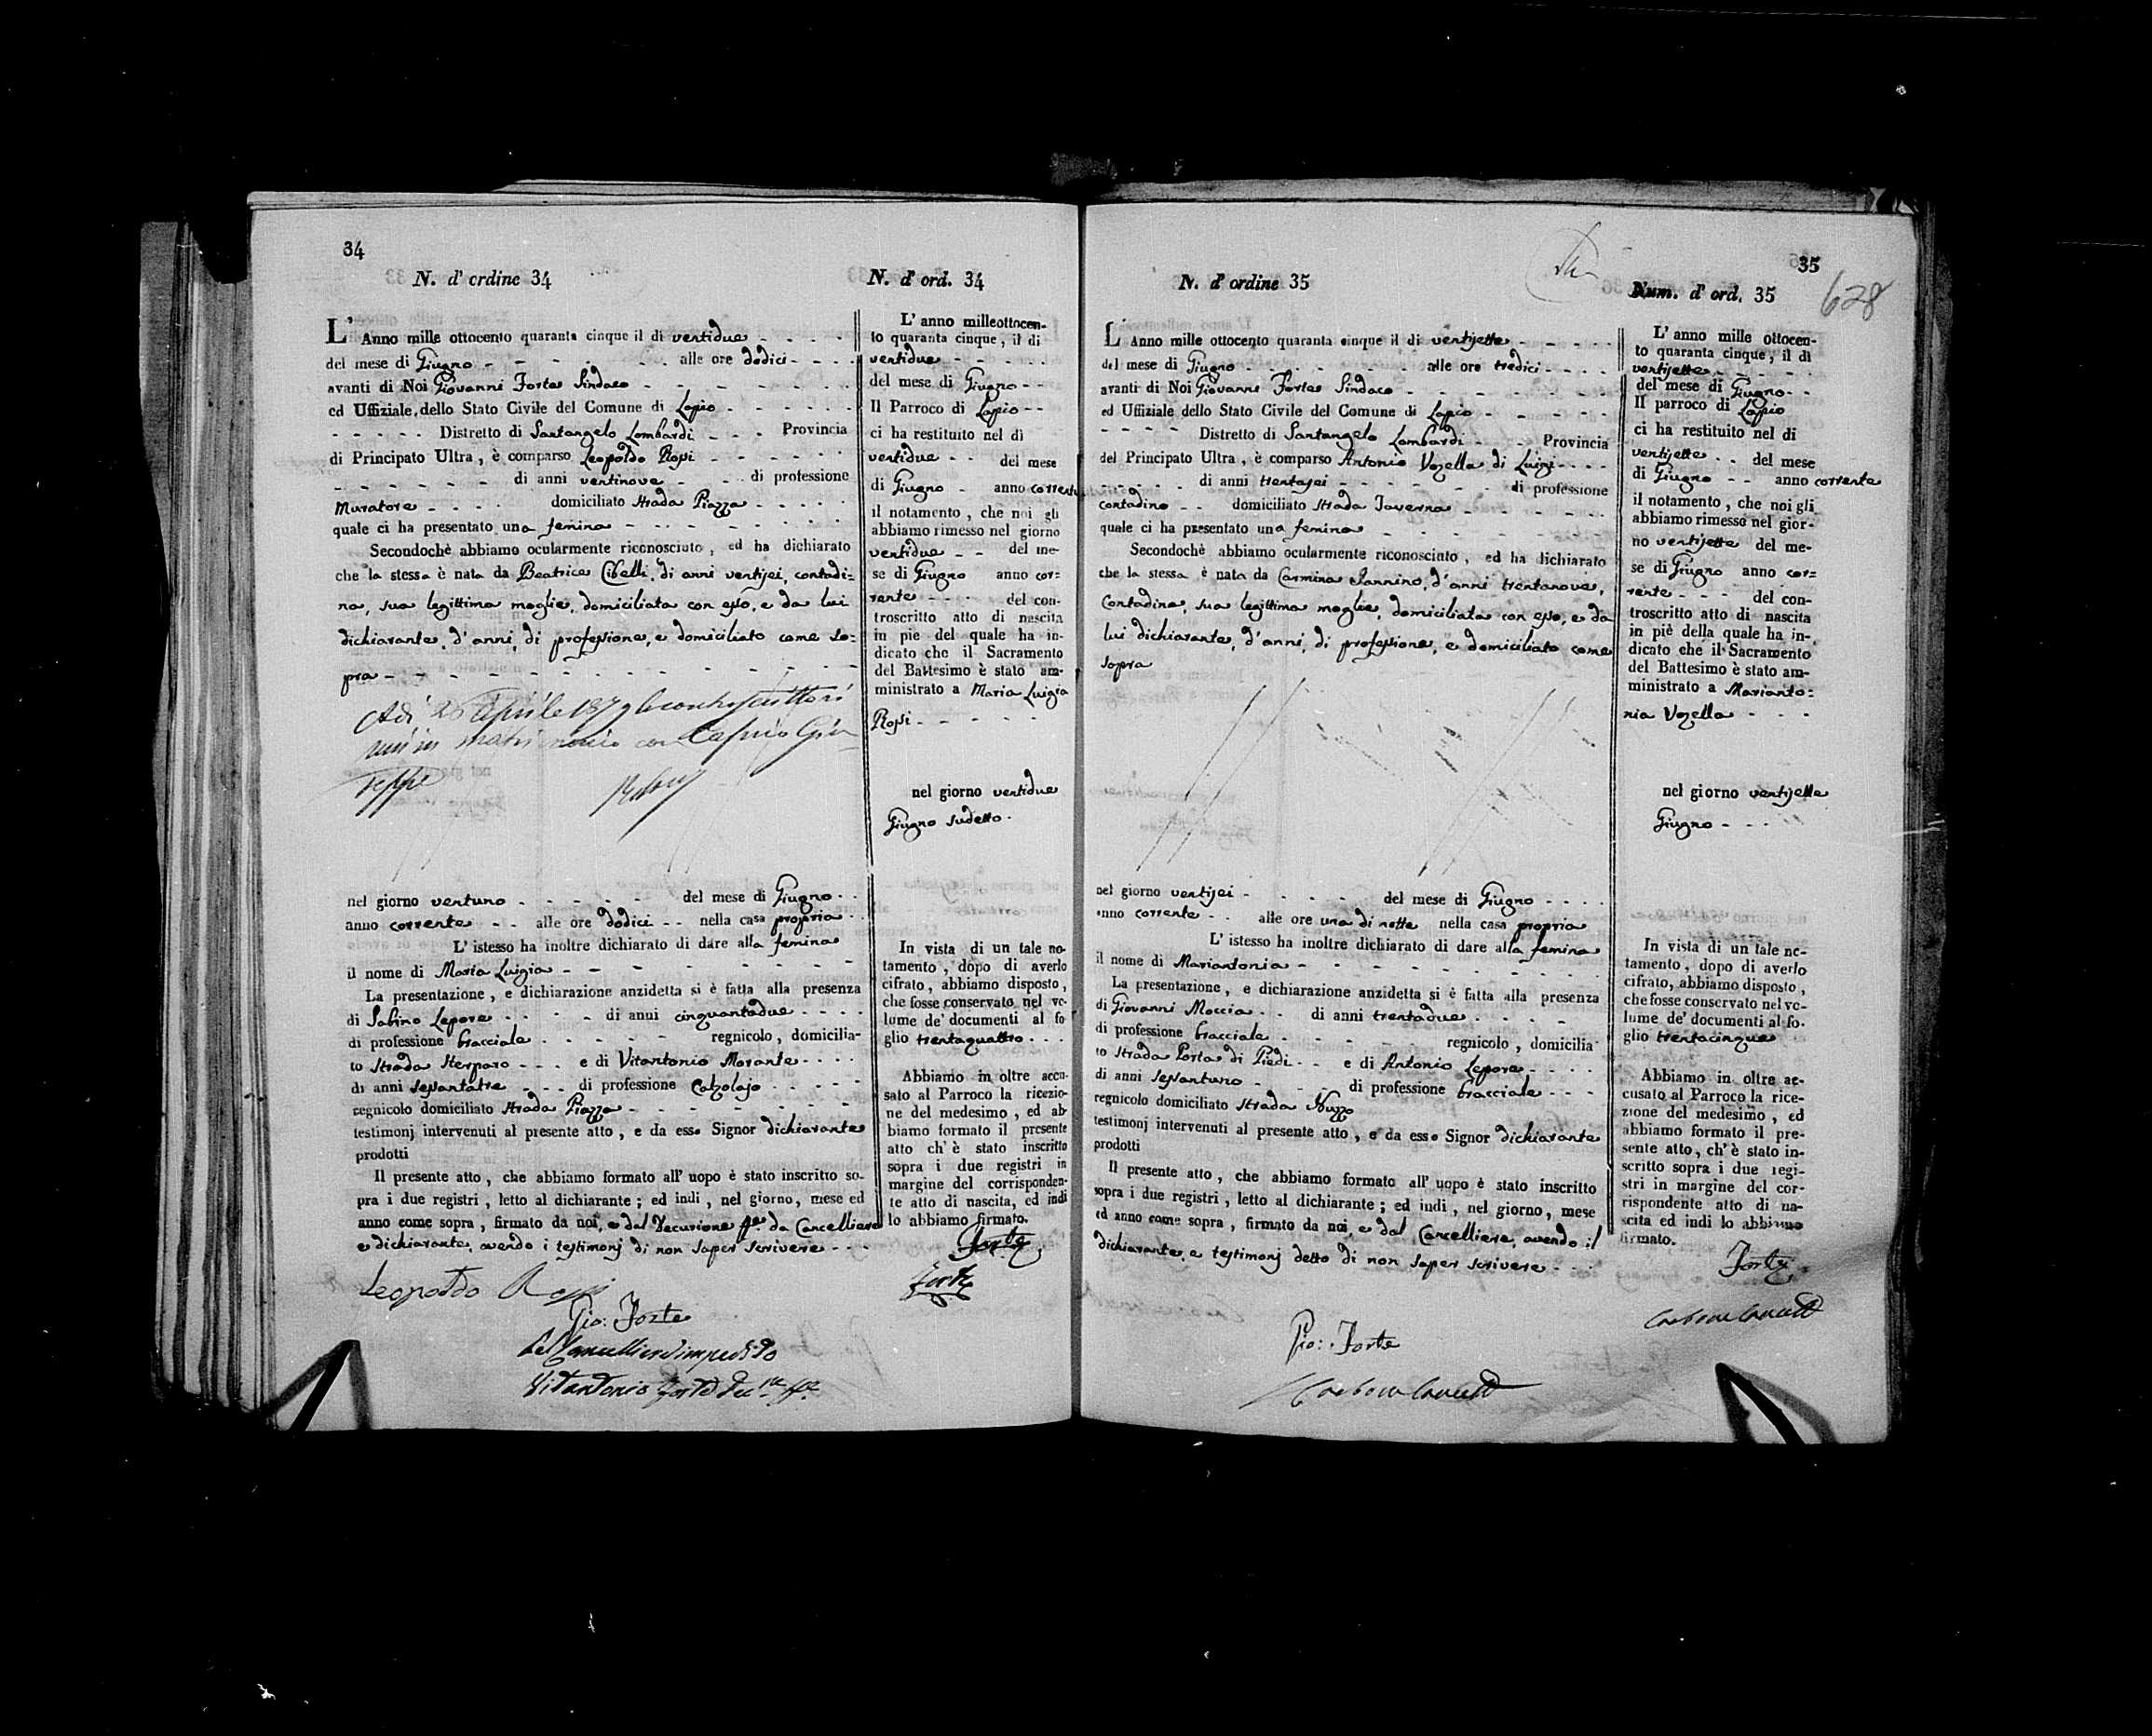 34
N. d' ordine 34
L' Anno mille ottocento quaranta cinque il di ventidue
del mese di Giugno alle ore dodici
avanti di Noi Giovanni Forte Sindaco
ed Uffiziale dello Stato Civile del Comune di Lapio
Distretto di Santangelo Lombardi Provincia
di Principato Ultra, è comparso Leopoldo Rossi
di anni ventinove di professione
Muratore domiciliato Strada Piazza
quale ci ha presentato una femina
Secondochè abbiamo ocularmente riconosciuto, ed ha dichiarato
che la stessa è nata da Beatrice Cibelli, di anni ventisei, contadi=
na, sua legittima moglie, domiciliata con esso, e da lui
dichiarante, d'anni, di professione, e domiciliato come so=
pra
Adi 26 Aprile 1879 la controscritta si
unì in matrimonio con Giu
seppe
nel giorno ventuno del mese di Giugno
anno corrente alle ore dodici nella casa propria
L' istesso ha inoltre dichiarato di dare alla femina
il nome di Maria Luigia
La presentazione, e dichiarazione anzidetta si è fatta alla presenza
di Sabino Lepore di anni cinquantadue
di professione bracciale regnicolo, domicilia-
to Strada Sterparo e di Vitantonio Morante
di anni sessantatre di professione Calzolajo
regnicolo domiciliato Strada Piazza
testimonj intervenuti al presente atto, e da esso Signor dichiarante
prodotti
Il presente atto, che abbiamo formato all' uopo è stato inscritto so-
pra i due registri, letto al dichiarante; ed indi, nel giorno, mese ed
anno come sopra, firmato da noi, e dal Decurione ff.e da Cancelliere
e dichiarante, avendo i testimonj di non saper scrivere
Leopoldo Rossi
Gio: Forte
Pel Cancelliere impedito
Vitantonio Forte Dec.ne ff.e
N. d' ord. 34
L' anno milleottocen-
to quaranta cinque, il di
ventidue
del mese di Giugno
Il Parroco di Lapio
ci ha restituito nel di
ventidue del mese
di Giugno anno corrente
il notamento, che noi gli
abbiamo rimesso nel giorno
ventidue del me-
se di Giugno anno cor=
rente del con-
troscritto atto di nascita
in piè del quale ha in-
dicato che il Sacramento
del Battesimo è stato am-
ministrato a Maria Luigia
Rossi
nel giorno ventidue
Giugno sudetto.
In vista di un tale no-
tamento, dopo di averlo
cifrato, abbiamo disposto,
che fosse conservato nel vo-
lume de' documenti al fo
glio trentaquattro
Abbiamo in oltre accu-
sato al Parroco la ricezio-
ne del medesimo, ed ab
biamo formato il presente
atto ch' è stato inscritto
sopra i due registri in
margine del corrisponden-
te atto di nascita, ed indi
lo abbiamo firmato.
Forte
Forte
35
628
N. d' ordine 35
L' Anno mille ottocento quaranta cinque il di ventisette
del mese di Giugno alle ore tredici
avanti di Noi Giovanni Forte Sindaco
ed Uffiziale dello Stato Civile del Comune di Lapio
Distretto di Santangelo Lombardi Provincia
del Principato Ultra, è comparso Antonio Vozella di Luigi
di anni trentasei di professione
contadino domiciliato Strada Taverna
quale ci ha presentato una femina
Secondochè abbiamo ocularmente riconosciuto, ed ha dichiarato
che la stessa è nata da Carmina Iannino, d'anni trentanove,
Contadina, sua legittima moglie, domiciliata con esso, e da
lui dichiarante, d'anni, di professione, e domiciliato come
sopra
nel giorno ventisei del mese di Giugno
anno corrente alle ore una di notte nella casa propria
L' istesso ha inoltre dichiarato di dare alla femina
il nome di Mariantonia
La presentazione, e dichiarazione anzidetta si è fatta alla presenza
di Giovanni Moccia di anni trentadue
di professione bracciale regnicolo, domicilia-
to Strada Porta di Piedi e di Antonio Lepore
di anni sessantuno di professione bracciale
regnicolo domiciliato Strada Nuzzo
testimonj intervenuti al presente atto, e da esso Signor dichiarante
prodotti
Il presente atto, che abbiamo formato all' uopo è stato inscritto
sopra i due registri, letto al dichiarante; ed indi, nel giorno, mese
ed anno come sopra, firmato da noi, e dal Cancelliere, avendo il
dichiarante, e testimonj detto di non saper scrivere
Gio: Forte
Num. d' ord. 35
L' anno mille ottocen-
to quaranta cinque, il di
ventisette
del mese di Giugno
Il parroco di Lapio
ci ha restituito nel di
ventisette del mese
di Giugno anno corrente
il notamento, che noi gli
abbiamo rimesso nel gior-
no ventisette del me-
se di Giugno anno cor=
rente del con-
troscritto atto di nascita
in piè della quale ha in-
dicato che il Sacramento
del Battesimo è stato am-
ministrato a Marianto=
nia Vozella
nel giorno ventisette
Giugno
In vista di un tale no-
tamento, dopo di averlo
cifrato, abbiamo disposto,
che fosse conservato nel vo-
lume de' documenti al fo-
glio trentacinque
Abbiamo in oltre ac-
cusato al Parroco la rice-
zione del medesimo, ed
abbiamo formato il pre-
sente atto, ch' è stato in-
scritto sopra i due regi-
stri in margine del cor-
rispondente atto di na-
scita ed indi lo abbiamo
firmato.
Forte